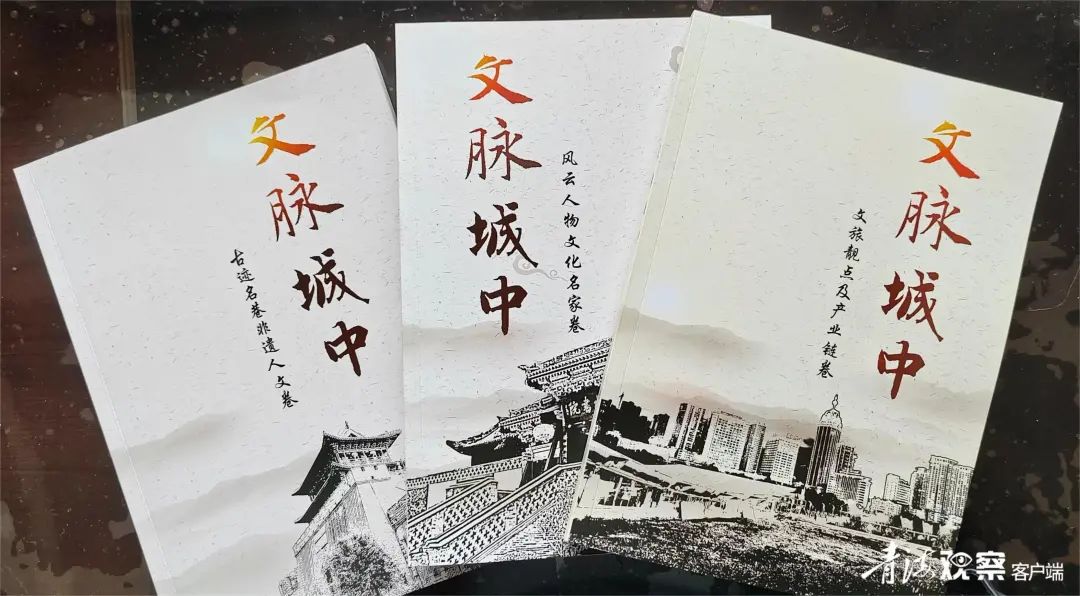 文脉城中
古迹名巷非遗人文卷
文脉城中
风云人物文化名家卷
文脉城中
文旅靓点及产业链卷
青海观察客户端